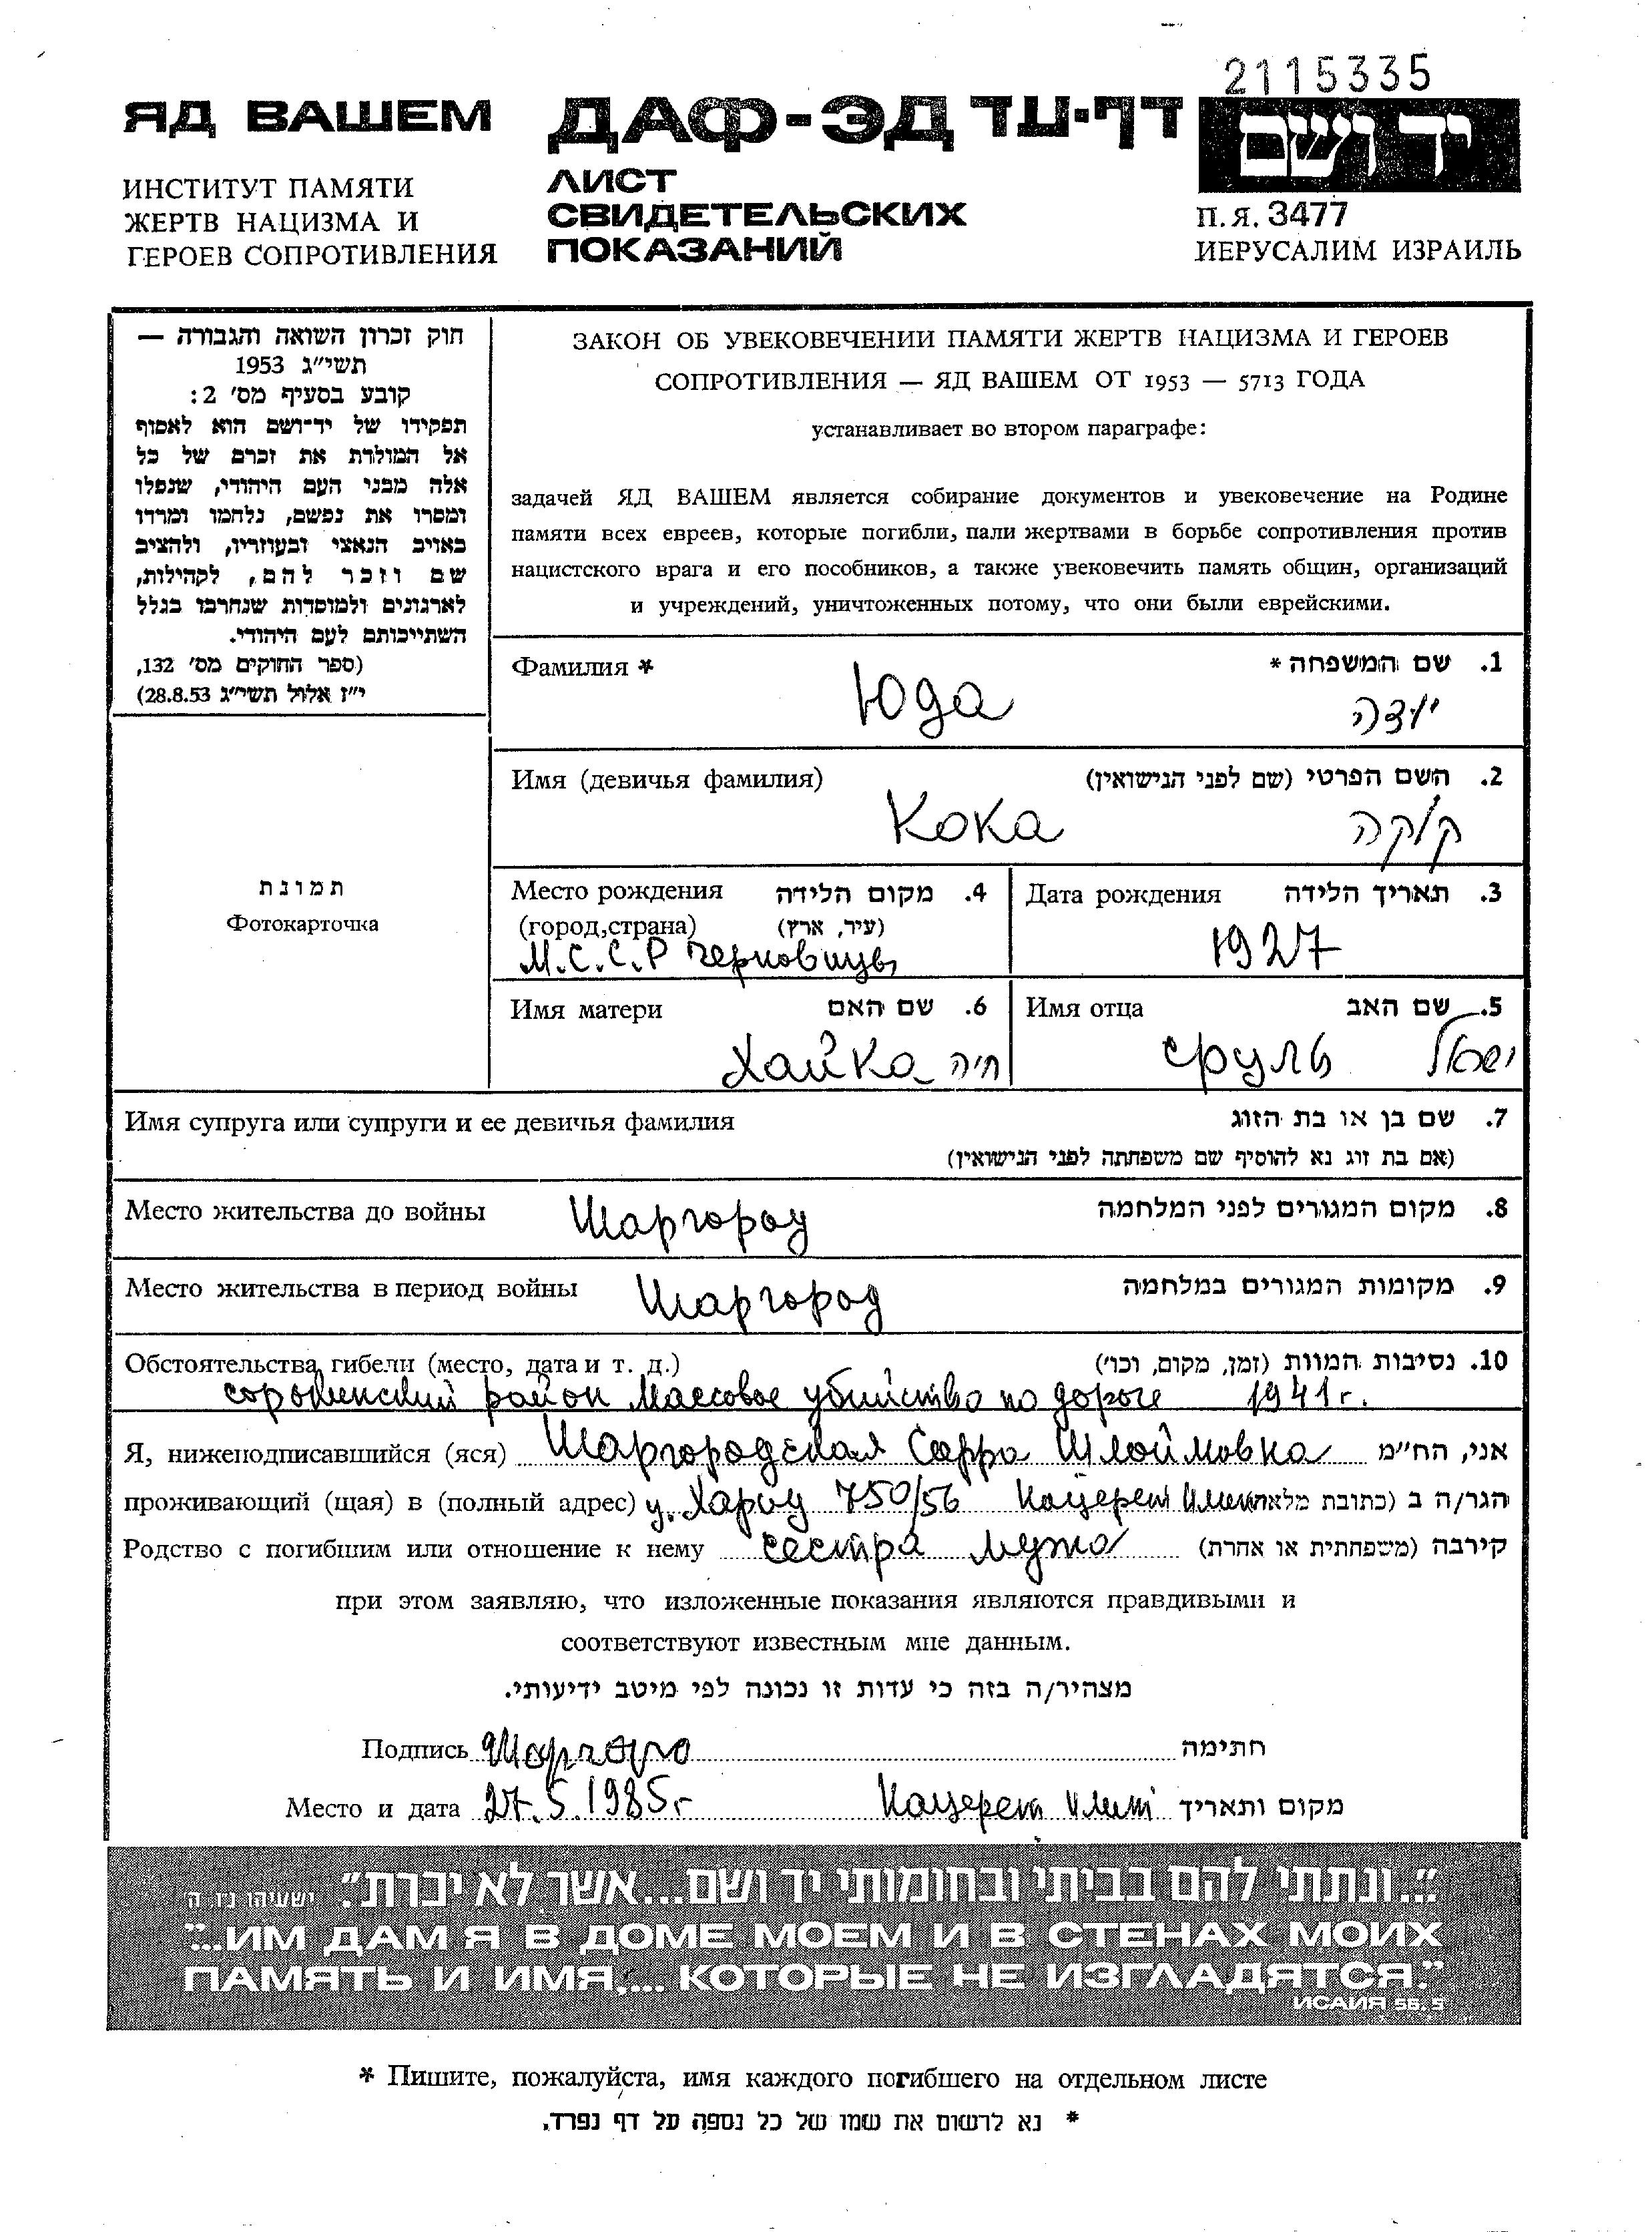 2115335
ЯД ВАШЕМ
ДАФ-ЭД דף-עד
יד ושם
ИНСТИТУТ ПАМЯТИ
ЖЕРТВ НАЦИЗМА И
ГЕРОЕВ СОПРОТИВЛЕНИЯ
ЛИСТ
СВИДЕТЕЛЬСКИХ
ПОКАЗАНИЙ
П.Я. 3477
ИЕРУСАЛИМ ИЗРАИЛЬ
חוק זכרון השואה והגבורה —
תשי״ג 1953
קובע בסעיף מס׳ 2:
תפקידו של יד־ושם הוא לאסוף
אל המולדת את זכרם של כל
אלה מבני העם היהודי, שנפלו
ומסרו את נפשם, נלחמו ומרדו
באויב הנאצי ובעוזריו, ולהציב
שם וזכר להם, לקהילות,
לארגונים ולמוסדות שנחרבו בגלל
השתייכותם לעם היהודי.
(ספר החוקים מס׳ 132,
י״ז אלול תשי״ג 28.8.53)
ЗАКОН ОБ УВЕКОВЕЧЕНИИ ПАМЯТИ ЖЕРТВ НАЦИЗМА И ГЕРОЕВ
СОПРОТИВЛЕНИЯ — ЯД ВАШЕМ ОТ 1953 — 5713 ГОДА
устанавливает во втором параграфе:
задачей ЯД ВАШЕМ является собирание документов и увековечение на Родине
памяти всех евреев, которые погибли, пали жертвами в борьбе сопротивления против
нацистского врага и его пособников, а также увековечить память общин, организаций
и учреждений, уничтоженных потому, что они были еврейскими.
Фамилия * 1. שם המשפחה *
Юда יודה
Имя (девичья фамилия) 2. השם הפרטי (שם לפני הנישואין)
Кока קוקה
תמונת
Фотокарточка
Место рождения 4. מקום הלידה
(город,страна) (עיר, ארץ)
М.С.С.Р Черновицы
Дата рождения 3. תאריך הלידה
1927
Имя матери 6. שם האם
Хайка חיה
Имя отца 5. שם האב
Сруль ישראל
Имя супруга или супруги и ее девичья фамилия 7. שם בן או בת הזוג
(אם בת זוג נא להוסיף שם משפחתה לפני הנישואין)
Место жительства до войны Шаргород 8. מקום המגורים לפני המלחמה
Место жительства в период войны Шаргород 9. מקומות המגורים במלחמה
Обстоятельства гибели (место, дата и т. д.) 10. נסיבות המוות (זמן, מקום, וכו׳)
район Массовое убийство по дороге 1941 г.
Я, нижеподписавшийся (яся) Шаргородская Сарра Шлоймовна אני, הח״מ
проживающий (щая) в (полный адрес) у. Хариц 750/56 Нацерет Илит הגר/ה ב (כתובת מלאה)
Родство с погибшим или отношение к нему сестра мужа קירבה (משפחתית או אחרת)
при этом заявляю, что изложенные показания являются правдивыми и
соответствуют известным мне данным.
מצהיר/ה בזה כי עדות זו נכונה לפי מיטב ידיעותי.
Подпись חתימה
Место и дата 27.5.1985г Нацерет Илит מקום ותאריך
״...ונתתי להם בביתי ובחומותי יד ושם...אשר לא יכרת״. ישעיהו נו ה
"...ИМ ДАМ Я В ДОМЕ МОЕМ И В СТЕНАХ МОИХ
ПАМЯТЬ И ИМЯ,... КОТОРЫЕ НЕ ИЗГЛАДЯТСЯ."
ИСАИЯ 56, 5
* Пишите, пожалуйста, имя каждого погибшего на отдельном листе
* נא לרשום את שמו של כל נספה על דף נפרד.